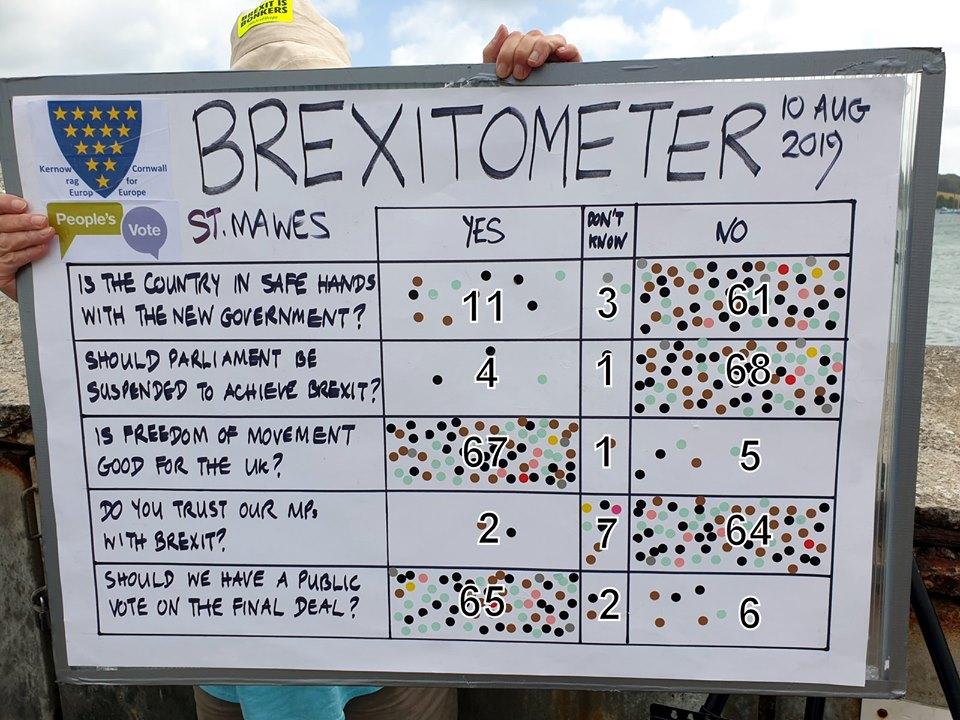 BREXIT IS
BONKERS
BREXITOMETER
10 AUG
2019
Kernow Cornwall
rag for
Europ Europe
People's
Vote
ST. MAWES
YES
DON'T
KNOW
NO
IS THE COUNTRY IN SAFE HANDS
WITH THE NEW GOVERNMENT?
11
3
61
SHOULD PARLIAMENT BE
SUSPENDED TO ACHIEVE BREXIT?
4
1
68
IS FREEDOM OF MOVEMENT
GOOD FOR THE UK?
67
1
5
DO YOU TRUST OUR MPs
WITH BREXIT?
2
7
64
SHOULD WE HAVE A PUBLIC
VOTE ON THE FINAL DEAL?
65
2
6